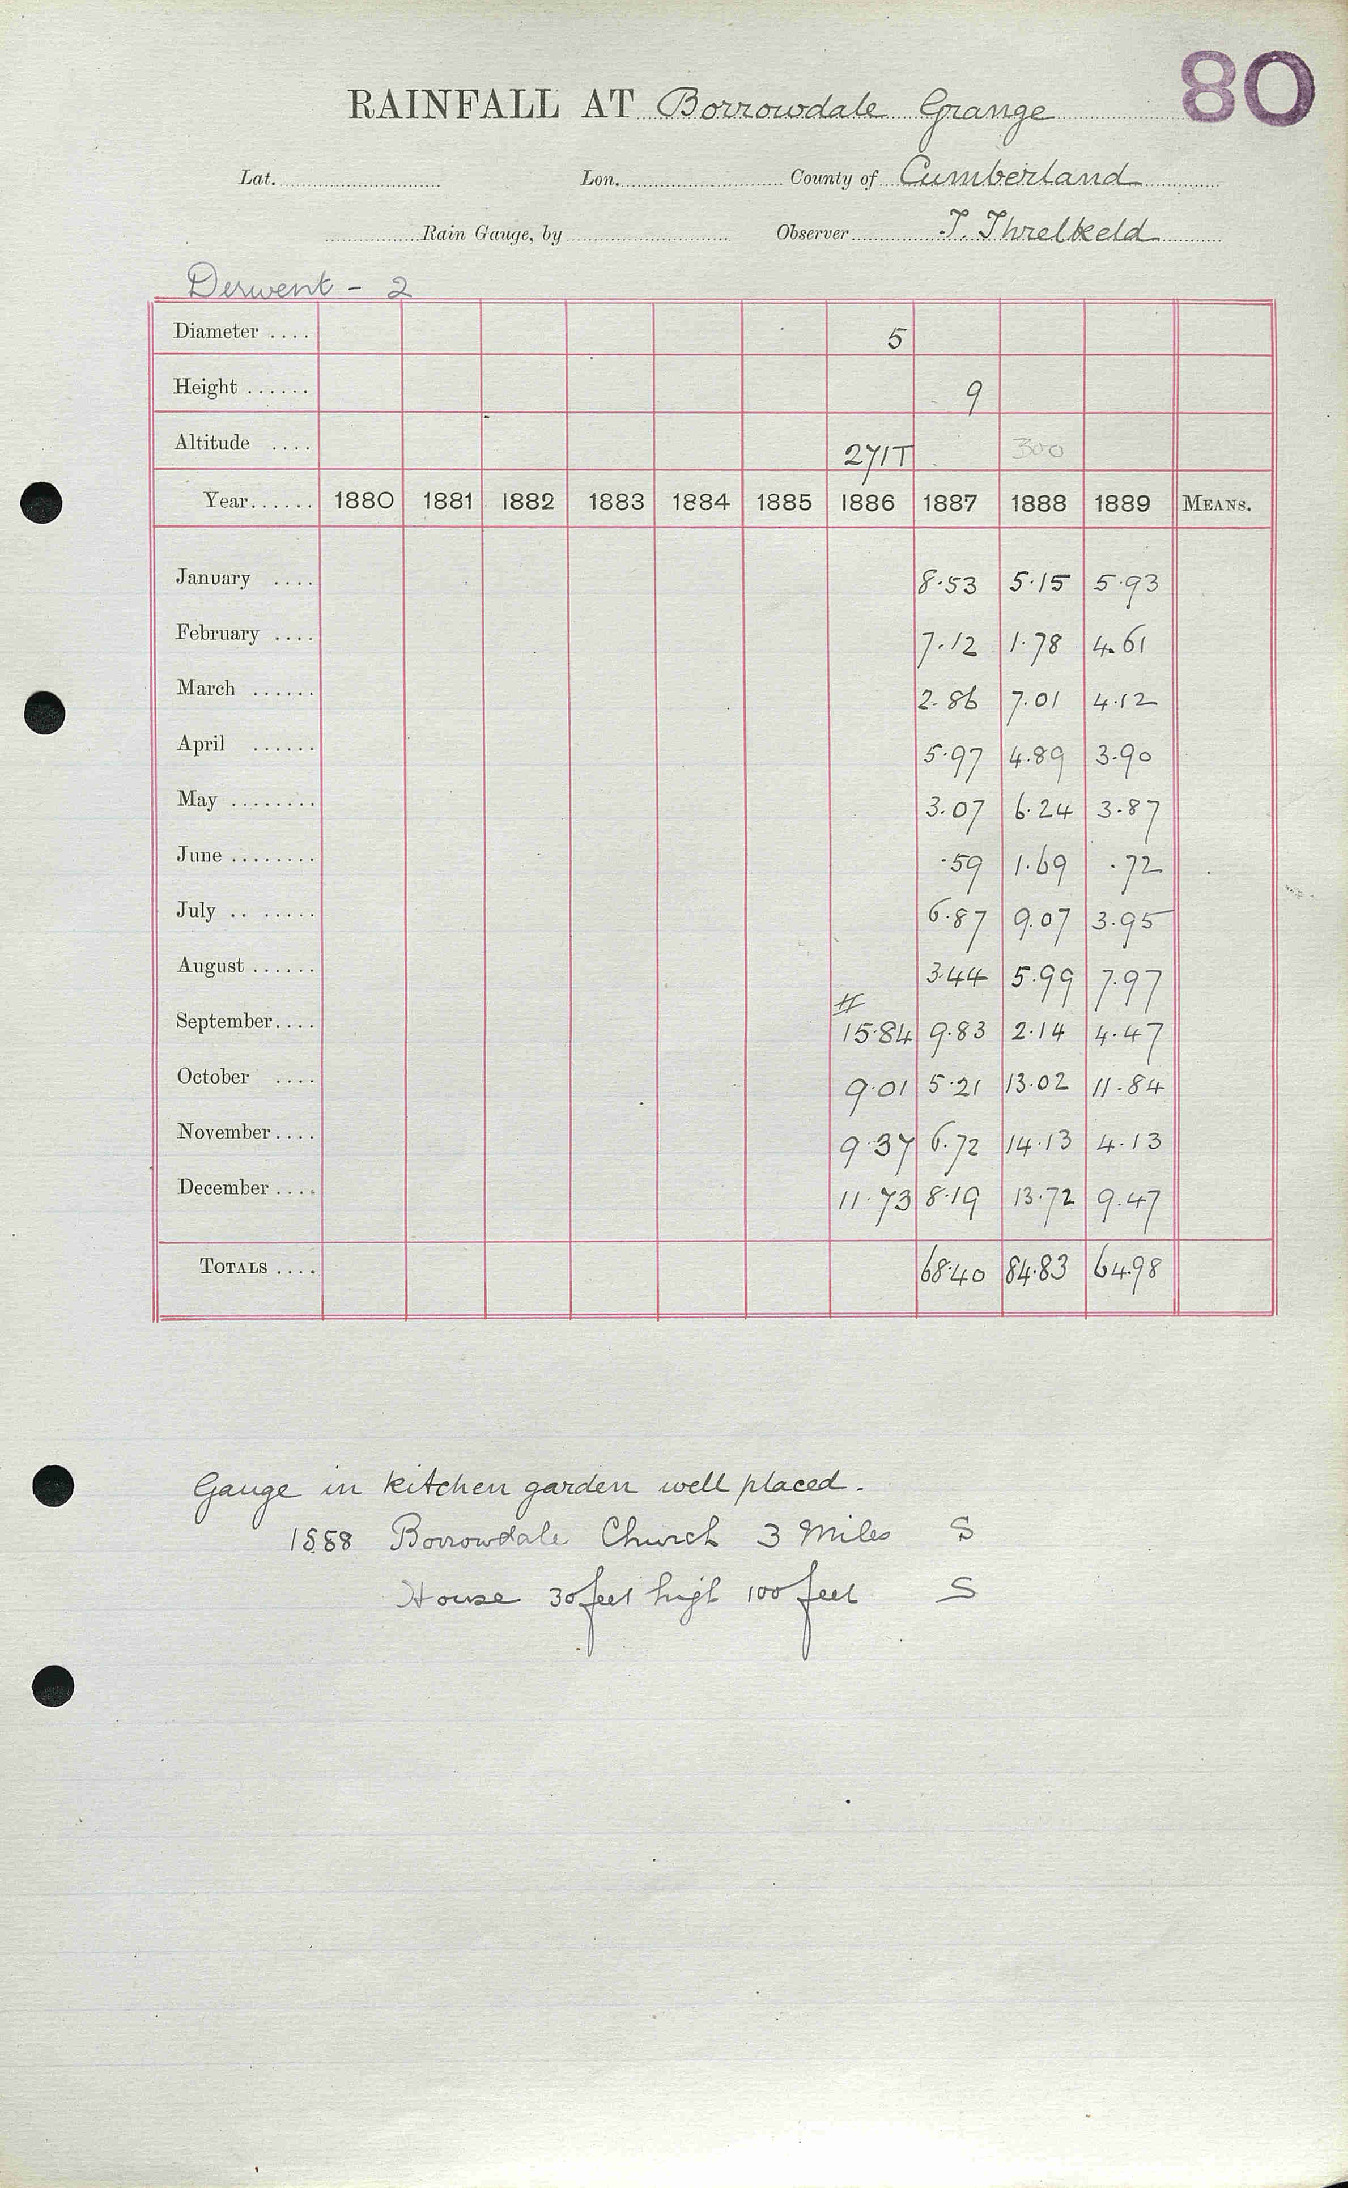 80
RAINFALL AT Borrowdale Grange
Lat. Lon. County of Cumberland
Rain Gauge, by Observer T. Threlkeld
Derwent - 2
Diameter .... 5
Height ...... 9
Altitude .... 271T 300
Year...... 1880 1881 1882 1883 1884 1885 1886 1887 1888 1889 MEANS.
January .... 8.53 5.15 5.93
February .... 7.12 1.78 4.61
March ...... 2.86 7.01 4.12
April ...... 5.97 4.89 3.90
May ........ 3.07 6.24 3.87
June ........ .59 1.69 .72
July .. ..... 6.87 9.07 3.95
August ...... 3.44 5.99 7.97
September.... 15.84 9.83 2.14 4.47
October .... 9.01 5.21 13.02 11.84
November.... 9.37 6.72 14.13 4.13
December.... 11.73 8.19 13.72 9.47
TOTALS .... 68.40 84.83 64.98
Gauge in kitchen garden well placed.
1888 Borrowdale Church 3 Miles S
House 30 feet high 100 feet S